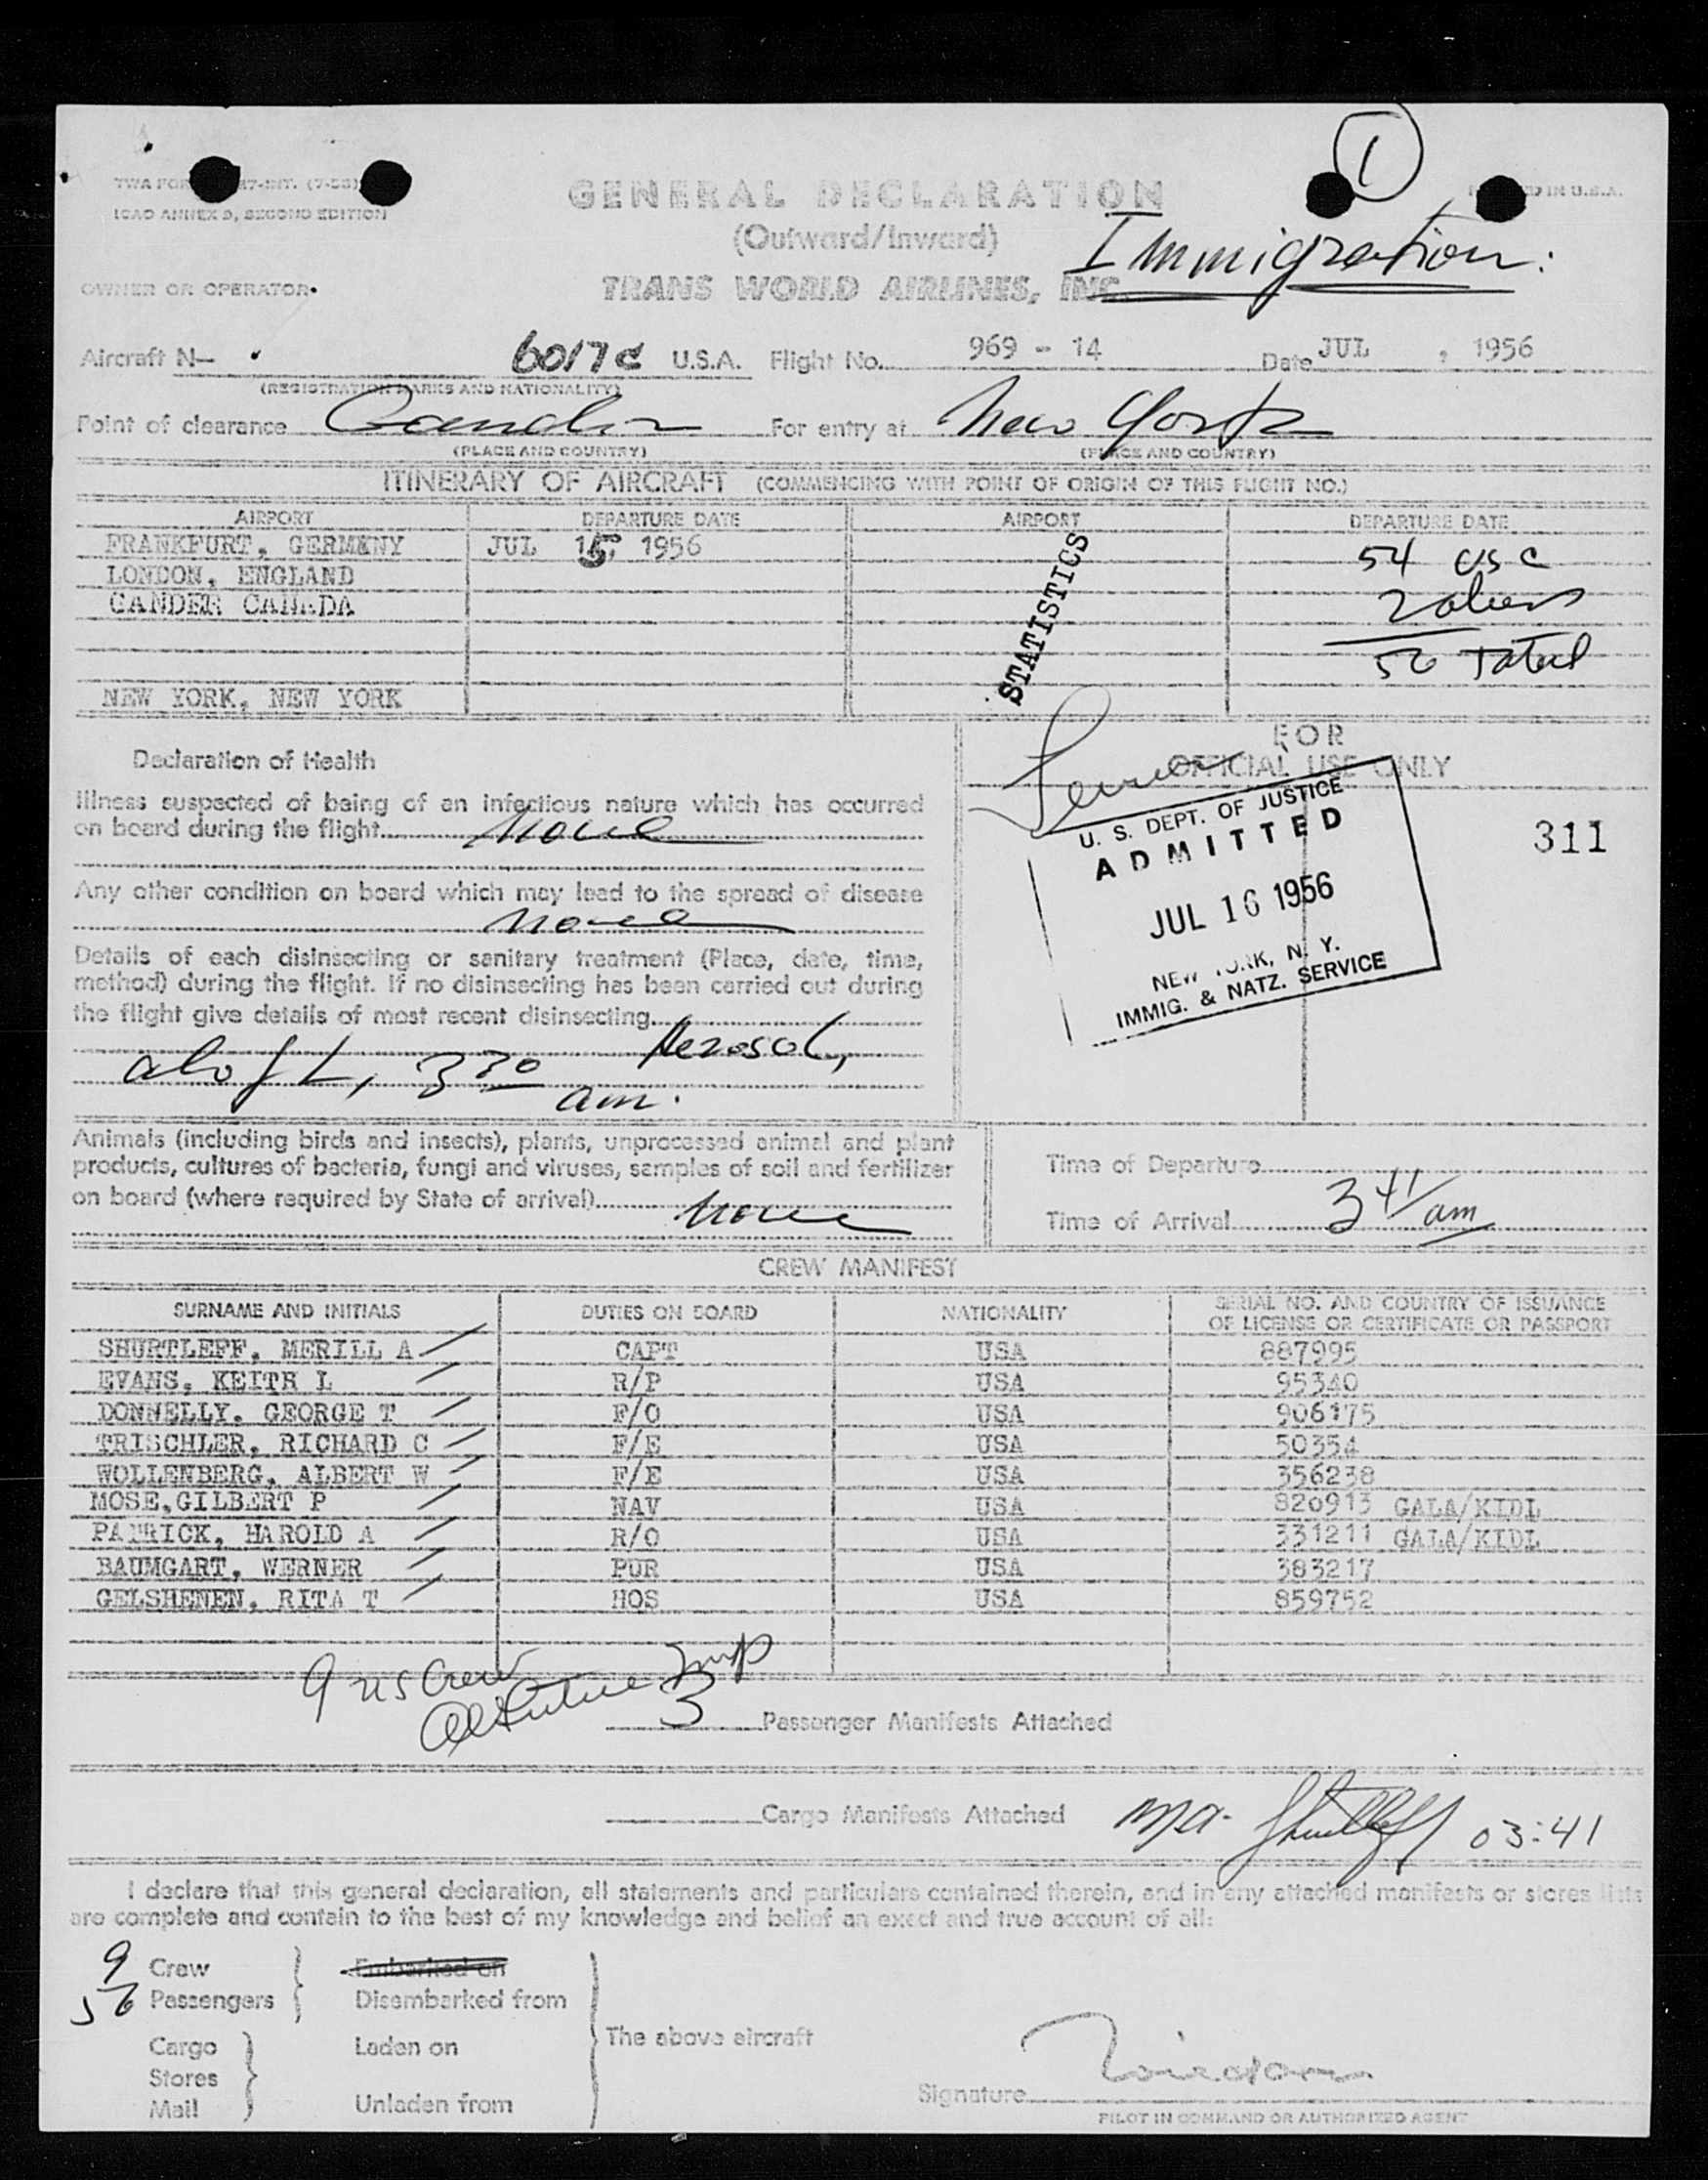 1
TWA FOR 87-INT. (7-53)
IN U.S.A.
ICAO ANNEX 9, SECOND EDITION
GENERAL DECLARATION
(Outward/Inward)
Immigration:
OWNER OR OPERATOR.
TRANS WORLD AIRLINES, INC.
Aircraft N- 6017C U.S.A. Flight No. 969 - 14 Date JUL , 1956
(REGISTRATION MARKS AND NATIONALITY)
Point of clearance Gander For entry at New York
(PLACE AND COUNTRY) (PLACE AND COUNTRY)
ITINERARY OF AIRCRAFT (COMMENCING WITH POINT OF ORIGIN OF THIS FLIGHT NO.)
AIRPORT DEPARTURE DATE AIRPORT DEPARTURE DATE
FRANKFURT, GERMANY JUL 15, 1956 54 USC
LONDON, ENGLAND
GANDER CANADA 2 aliens
STATISTICS
56 Total
NEW YORK, NEW YORK
FOR
OFFICIAL USE ONLY
Declaration of Health
Illness suspected of being of an infectious nature which has occurred
on board during the flight None
U. S. DEPT. OF JUSTICE
ADMITTED
JUL 16 1956
NEW YORK, N. Y.
IMMIG. & NATZ. SERVICE
311
Any other condition on board which may lead to the spread of disease
None
Details of each disinsecting or sanitary treatment (Place, date, time,
method) during the flight. If no disinsecting has been carried out during
the flight give details of most recent disinsecting
Aerosol,
aloft, 3 30 am.
Animals (including birds and insects), plants, unprocessed animal and plant
products, cultures of bacteria, fungi and viruses, samples of soil and fertilizer
on board (where required by State of arrival) None
Time of Departure
Time of Arrival 3 41 am
CREW MANIFEST
SURNAME AND INITIALS DUTIES ON BOARD NATIONALITY SERIAL NO. AND COUNTRY OF ISSUANCE
OF LICENSE OR CERTIFICATE OR PASSPORT
SHURTLEFF, MERILL A CAPT USA 887995
EVANS, KEITH L R/P USA 95340
DONNELLY. GEORGE T F/O USA 906175
TRISCHLER, RICHARD C F/E USA 50354
WOLLENBERG, ALBERT W F/E USA 356238
MOSE,GILBERT P NAV USA 820913 GALA/KIDL
PATRICK, HAROLD A R/O USA 331211 GALA/KIDL
BAUMGART, WERNER PUR USA 383217
GELSHENEN, RITA T HOS USA 859752
9 US Crew
3 Passenger Manifests Attached
Cargo Manifests Attached MA. Shurtleff 03:41
I declare that this general declaration, all statements and particulars contained therein, and in any attached manifests or stores lists
are complete and contain to the best of my knowledge and belief an exact and true account of all:
9 Crew Embarked on
56 Passengers Disembarked from
The above aircraft
Cargo Laden on
Stores
Mail Unladen from
Signature
PILOT IN COMMAND OR AUTHORIZED AGENT